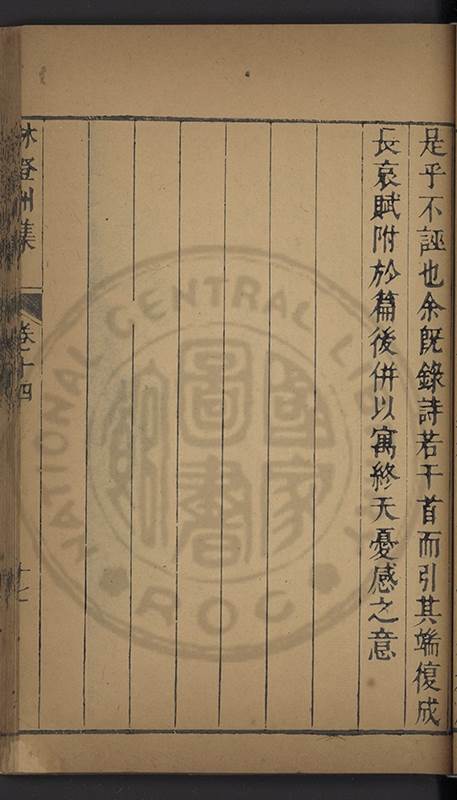 是乎不誣也余旣錄詩若干首而引其端復成
長哀賦附於篇後併以寓終天憂感之意
林登州集
卷十四
十七
國家圖書
NATIONAL CENTRAL LIBRARY
ROC